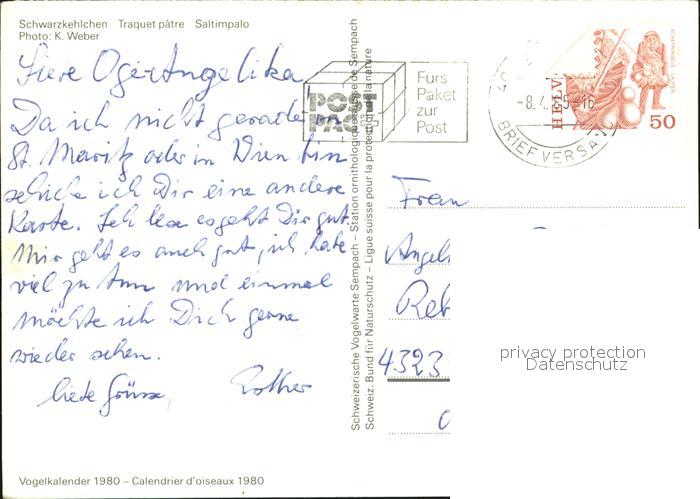 Schwarzkehlchen Traquet pâtre Saltimpalo
Photo: K. Weber
Liebe Angelika
Da ich nicht gerade in
St. Moritz oder in Wien bin
schicke ich Dir eine andere
Karte. Ich es geht Dir gut.
Mir geht es auch gut, ich habe
viel zu tun und einmal
möchte ich Dich gerne
wieder sehen.
liebe Grüsse,
Vogelkalender 1980 – Calendrier d'oiseaux 1980
Schweizerische Vogelwarte Sempach – Station ornithologique suisse de Sempach
Schweiz. Bund für Naturschutz – Ligue suisse pour la protection de la nature
POST
PAC
Fürs
Paket
zur
Post
BRIEFVERSAND
HELV
50
Frau
4323
privacy protection
Datenschutz